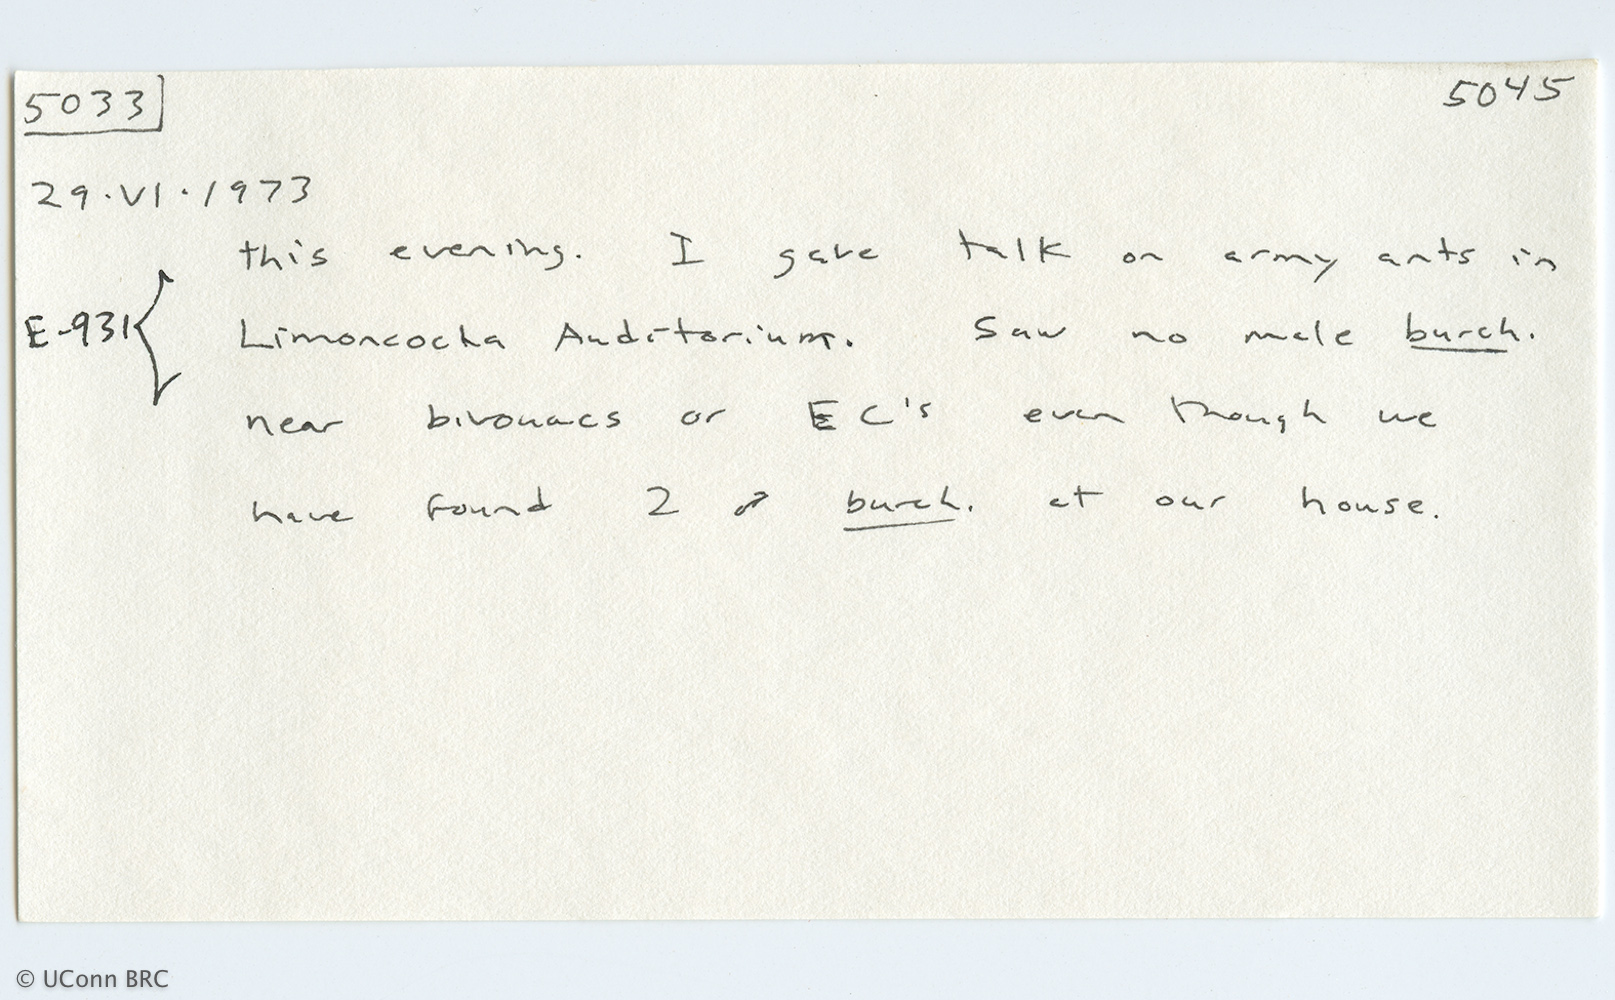 5033 5045
29.VI.1973
this evening. I gave talk on army ants in
E-931 Limoncocha Auditorium. Saw no male burch.
near bivouacs or EC's even though we
have found 2 ♂ burch. at our house.
© UConn BRC